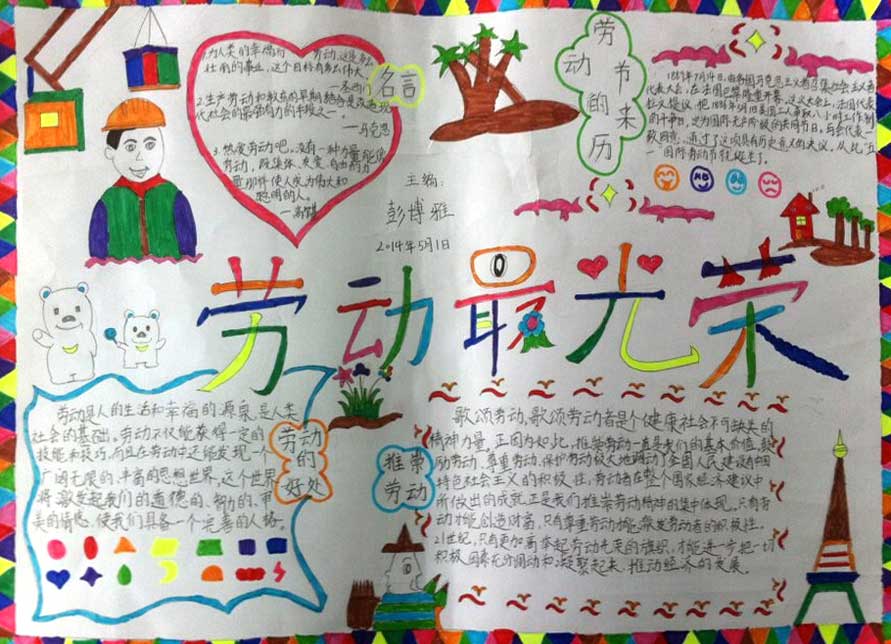 1.为人类的幸福而劳动,这是多么
壮丽的事业,这个目标有多么伟大。
2.生产劳动和教育的早期结合是改造现
代社会的最强有力的手段之一。
——马克思
3.热爱劳动吧。没有一种力量能像
劳动,既集体、友爱、自由的劳
动那样使人成为伟大和
聪明的人。
——高尔基
名言
主编:
彭博雅
2014年5月1日
劳动
节来
的历
1889年7月14日,由各国马克思主义者召集社会主义者
代表大会,在法国巴黎隆重开幕。这次大会上,法国代表
拉文提议:把1886年5月1日美国工人争取八小时工作制
的斗争日,定为国际无产阶级的共同节日。与会代表一
致同意,通过了这项具有历史意义的决议。从此,“五
一”国际劳动节诞生了。
劳动最光荣
劳动是人的生活和幸福的源泉,是人类
社会的基础。劳动不仅能获得一定的
技能和技巧,而且在劳动中还能发现一个
广阔无限的、丰富的思想世界,这个世界
将激发起我们的道德的、智力的、审
美的情感,使我们具备一个完善的人格。
劳动
的
好处
推崇
劳动
歌颂劳动、歌颂劳动者是个健康社会不可缺失的
精神力量。正因为如此,推崇劳动一直是我们的基本价值,鼓
励劳动、尊重劳动、保护劳动极大地调动了全国人民建设有中国
特色社会主义的积极性,劳动者在整个国家经济建设中
所做出的成就,正是我们推崇劳动精神的集中体现。只有劳
动才能创造财富,只有尊重劳动才能激发劳动者的积极性。
21世纪,只有更加高举起劳动光荣的旗帜,才能进一步把一切
积极因素充分调动和凝聚起来,推动经济的发展。